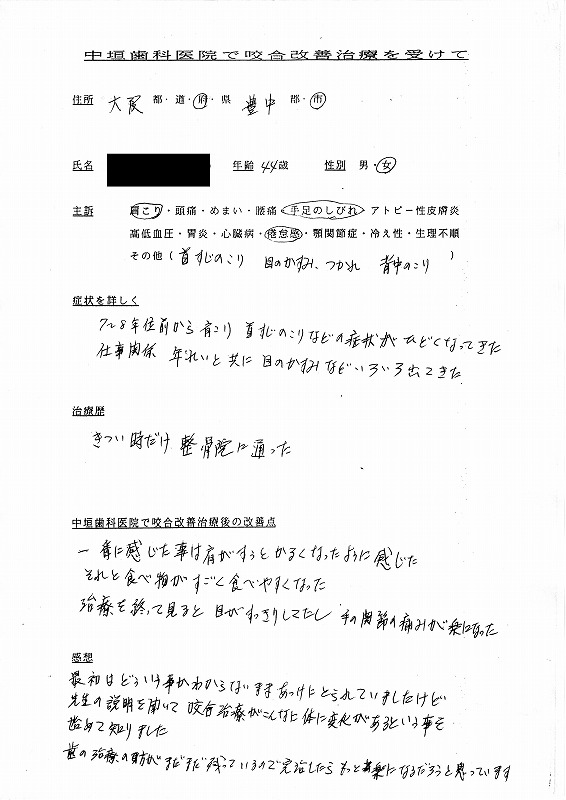 中垣歯科医院で咬合改善治療を受けて
住所 大阪 都・道・府・県 豊中 郡・市
氏名 年齢 44歳 性別 男・女
主訴 肩こり・頭痛・めまい・腰痛・手足のしびれ・アトピー性皮膚炎
高低血圧・胃炎・心臓病・倦怠感・顎関節症・冷え性・生理不順
その他（首すじのこり 目のかすみ、つかれ 背中のこり）
症状を詳しく
7~8年位前から肩こり 首すじのこりなどの症状がひどくなってきた
仕事関係 年れいと共に目のかすみなどいろいろ出てきた
治療歴
きつい時だけ整骨院に通った
中垣歯科医院で咬合改善治療後の改善点
一番に感じた事は肩がすうとかるくなったように感じた
それと食べ物がすごく食べやすくなった
治療を終って見ると目がすっきりしてたし 手の関節の痛みが楽になった
感想
最初はどういう事かわからないままあっけにとられていましたけど
先生の説明を聞いて咬合治療がこんなに体に変化があるという事を
始めて知りました
歯の治療の方がまだまだ残っているので完治したらもっと楽になるだろうと思っています